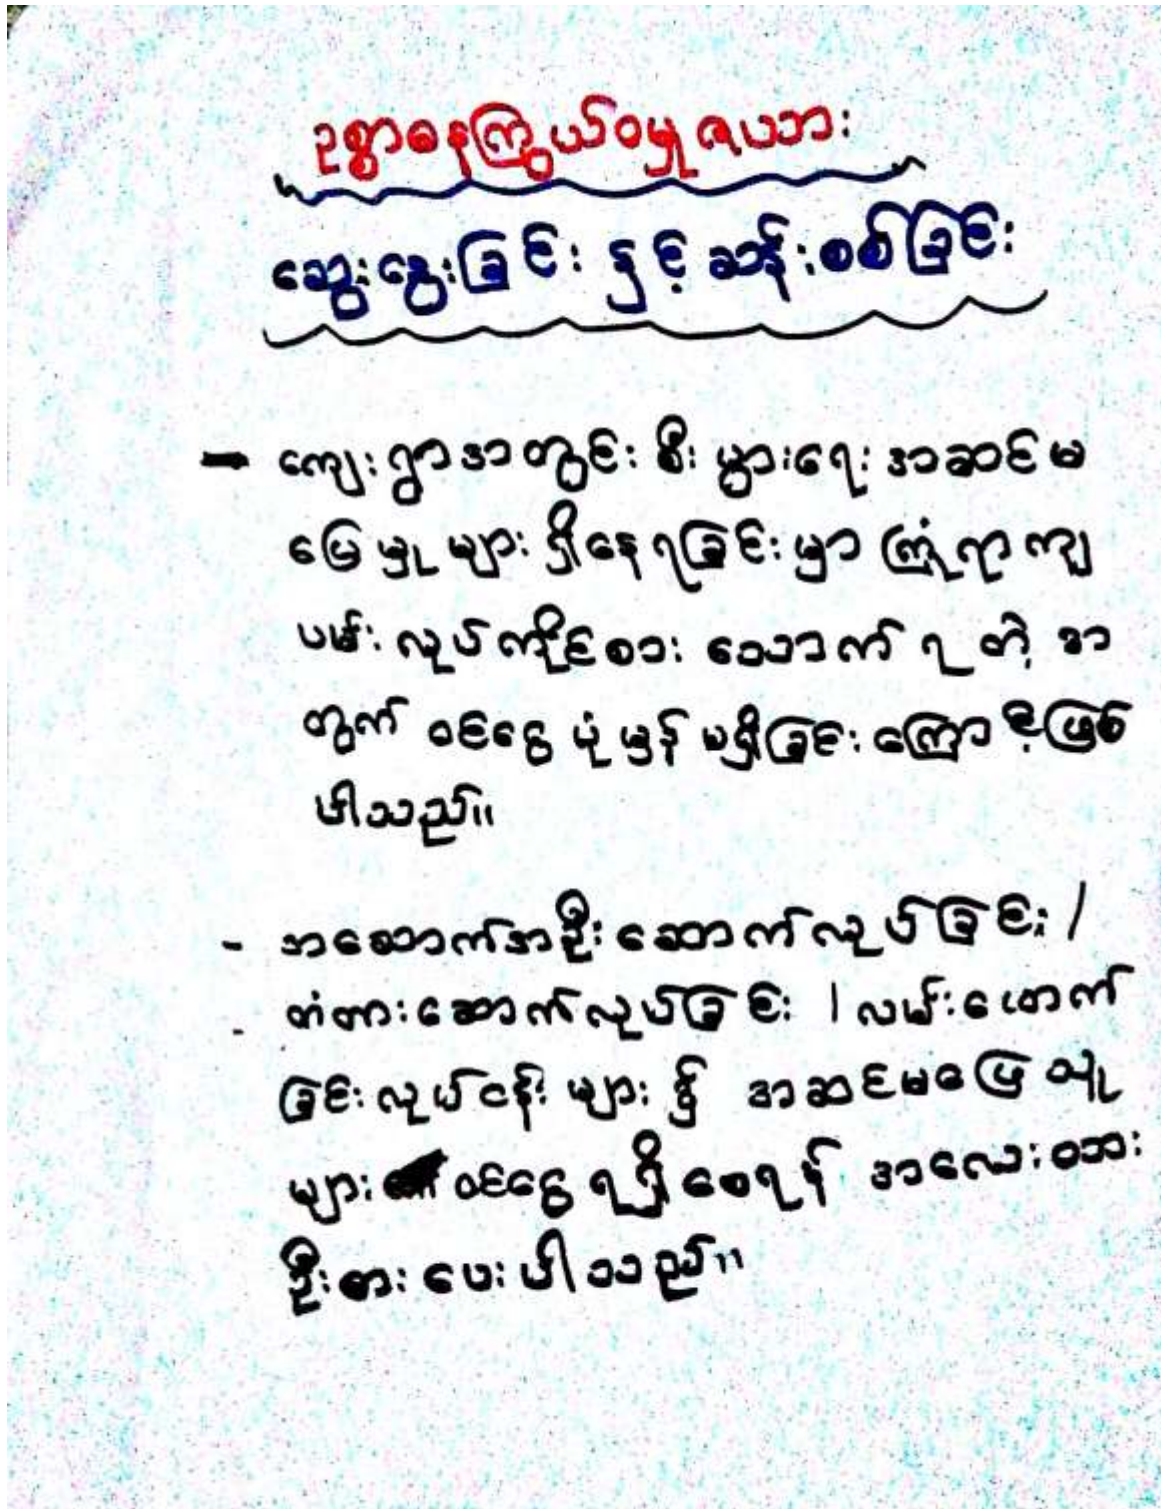 ဥစ္စာဓနကြွယ်ဝမှုဇယား
ဆွေးနွေးခြင်း နှင့် ဆန်းစစ်ခြင်း
- ကျေးရွာအတွင်း စီးပွားရေး အဆင်မ
ပြေမှု များ ရှိနေရခြင်းမှာ ကြုံရာကျ
ပမ်း လုပ်ကိုင်စား သောက် ရ တဲ့ အာ
တွက် ဝင်ငွေ ပုံမှန် မရှိခြင်းကြောင့်ဖြစ်
ပါသည်။
- အဆောက်အဦးဆောက်လုပ်ခြင်း /
- တံတားဆောက်လုပ်ခြင်း / လမ်းဖောက်
ခြင်းလုပ်ငန်းများ ၌ အဆင်မပြေသူ
များ ဝင်ငွေရရှိစေရန် အလေးထား
ဦးစားပေးပါသည်။